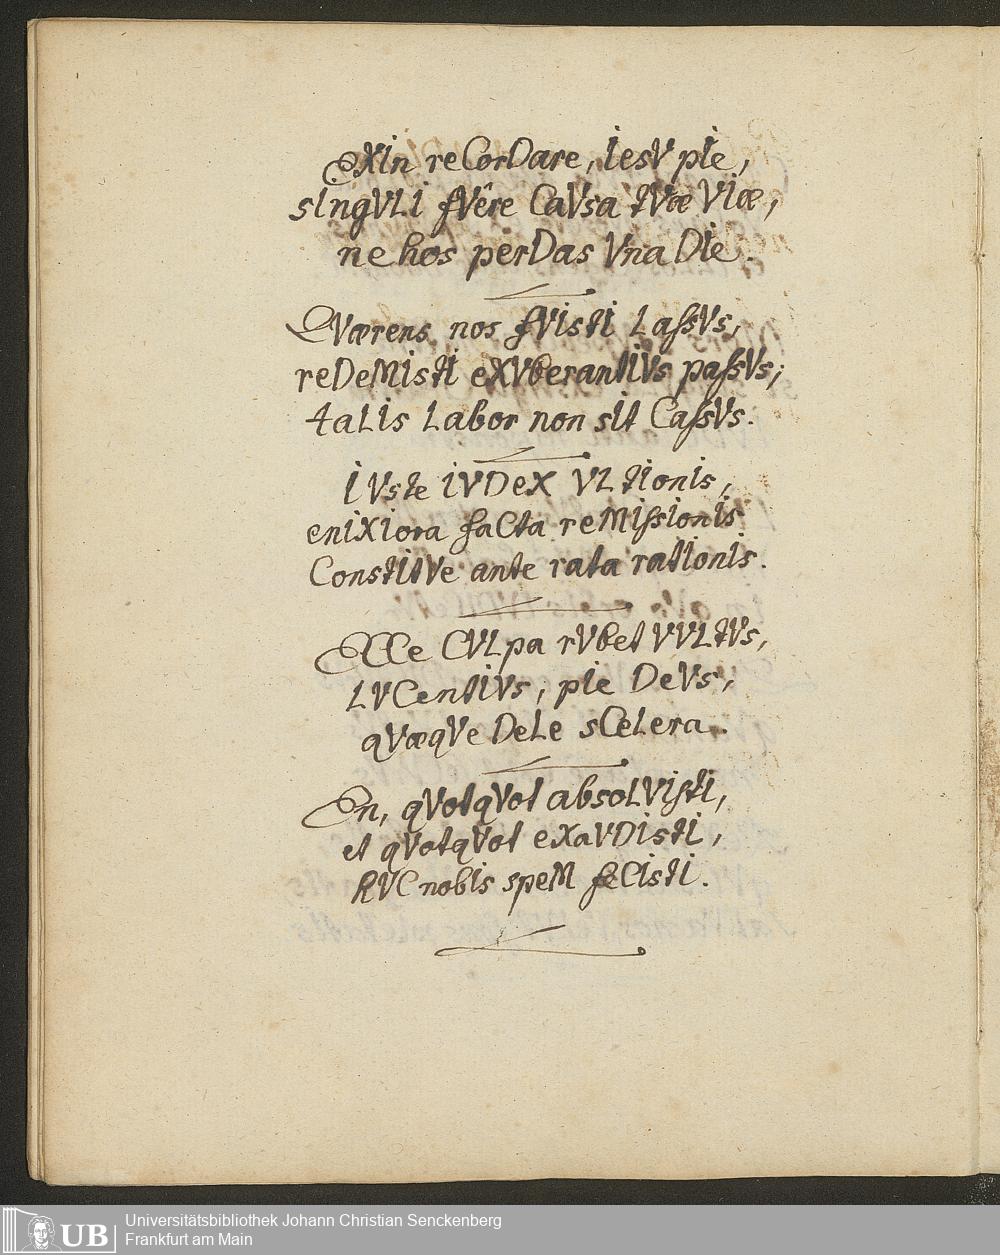 EXIn reCorDare, IesV pIe,
sIngVLI fVêre CaVsa tVæ VIæ,
ne hos perDas Vna DIe.
QVærens nos fVIstI LaſsVs,
reDeMIstI eXVberantIVs paſsVs;
taLIs Labor non sIt CaſsVs.
IVste IVDeX VLtIonIs,
enIXIora faCta reMIſsIonIs
ConstItVe ante rata ratIonIs.
ECCe CVLpa rVbet VVLtVs,
LVCentIVs, pIe DeVs,
qVæqVe DeLe sCeLera.
En, qVotqVot absoLVIſtI,
et qVotqVot eXaVDIstI,
HVC nobIs speM feCIstI.
Universitätsbibliothek Johann Christian Senckenberg
Frankfurt am Main
UB